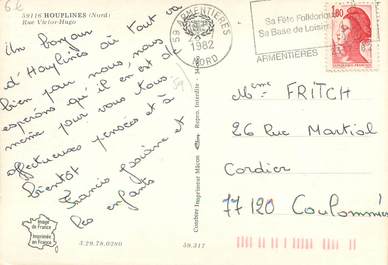 6€
59116 HOUPLINES (Nord)
Rue Victor-Hugo
Un bonjour
d'Houplines où tout va
bien pour nous, nous
espérons qu'il en est de
même pour vous tous
affectueuses pensées et à
bientôt
Francis Josiane et
les enfants
59 ARMENTIERES
1982
NORD
Sa Fête Folklorique
Sa Base de Loisirs
ARMENTIERES
1,80
Mme FRITCH
26 Rue Martial
Cordier
77120 Coulommiers
Combier Imprimeur Mâcon
Repro. Interdite
Image
de France
Imprimée
en France
5.29.78.0280
59.317